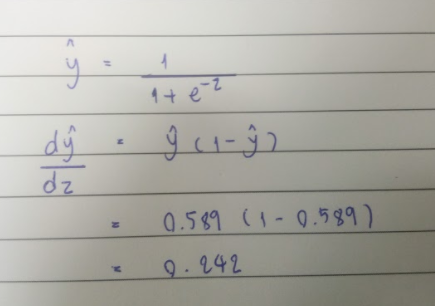 ŷ = 1 / (1 + e^-z)
dŷ/dz = ŷ (1 - ŷ)
= 0.589 (1 - 0.589)
= 0.242